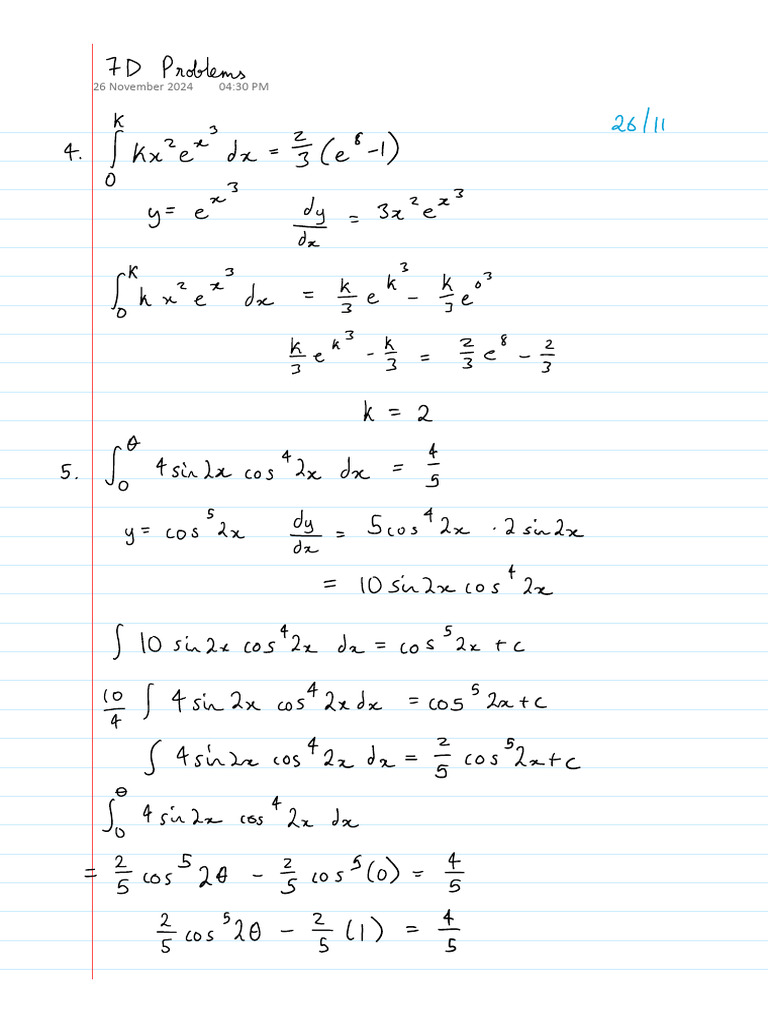 7D Problems
26 November 2024 04:30 PM
26/11
4. ∫₀ᴷ Kx²e^(x³) dx = 2/3 (e⁸ - 1)
y = e^(x³) dy/dx = 3x²e^(x³)
∫₀ᴷ kx²e^(x³) dx = k/3 e^(k³) - k/3 e^(0³)
k/3 e^(k³) - k/3 = 2/3 e⁸ - 2/3
k = 2
5. ∫₀^θ 4 sin2x cos⁴2x dx = 4/5
y = cos⁵2x dy/dx = 5cos⁴2x · 2 sin2x
= 10 sin2x cos⁴2x
∫ 10 sin2x cos⁴2x dx = cos⁵2x + c
10/4 ∫ 4 sin2x cos⁴2x dx = cos⁵2x + c
∫ 4 sin2x cos⁴2x dx = 2/5 cos⁵2x + c
∫₀^θ 4 sin2x cos⁴2x dx
= 2/5 cos⁵2θ - 2/5 cos⁵(0) = 4/5
2/5 cos⁵2θ - 2/5 (1) = 4/5